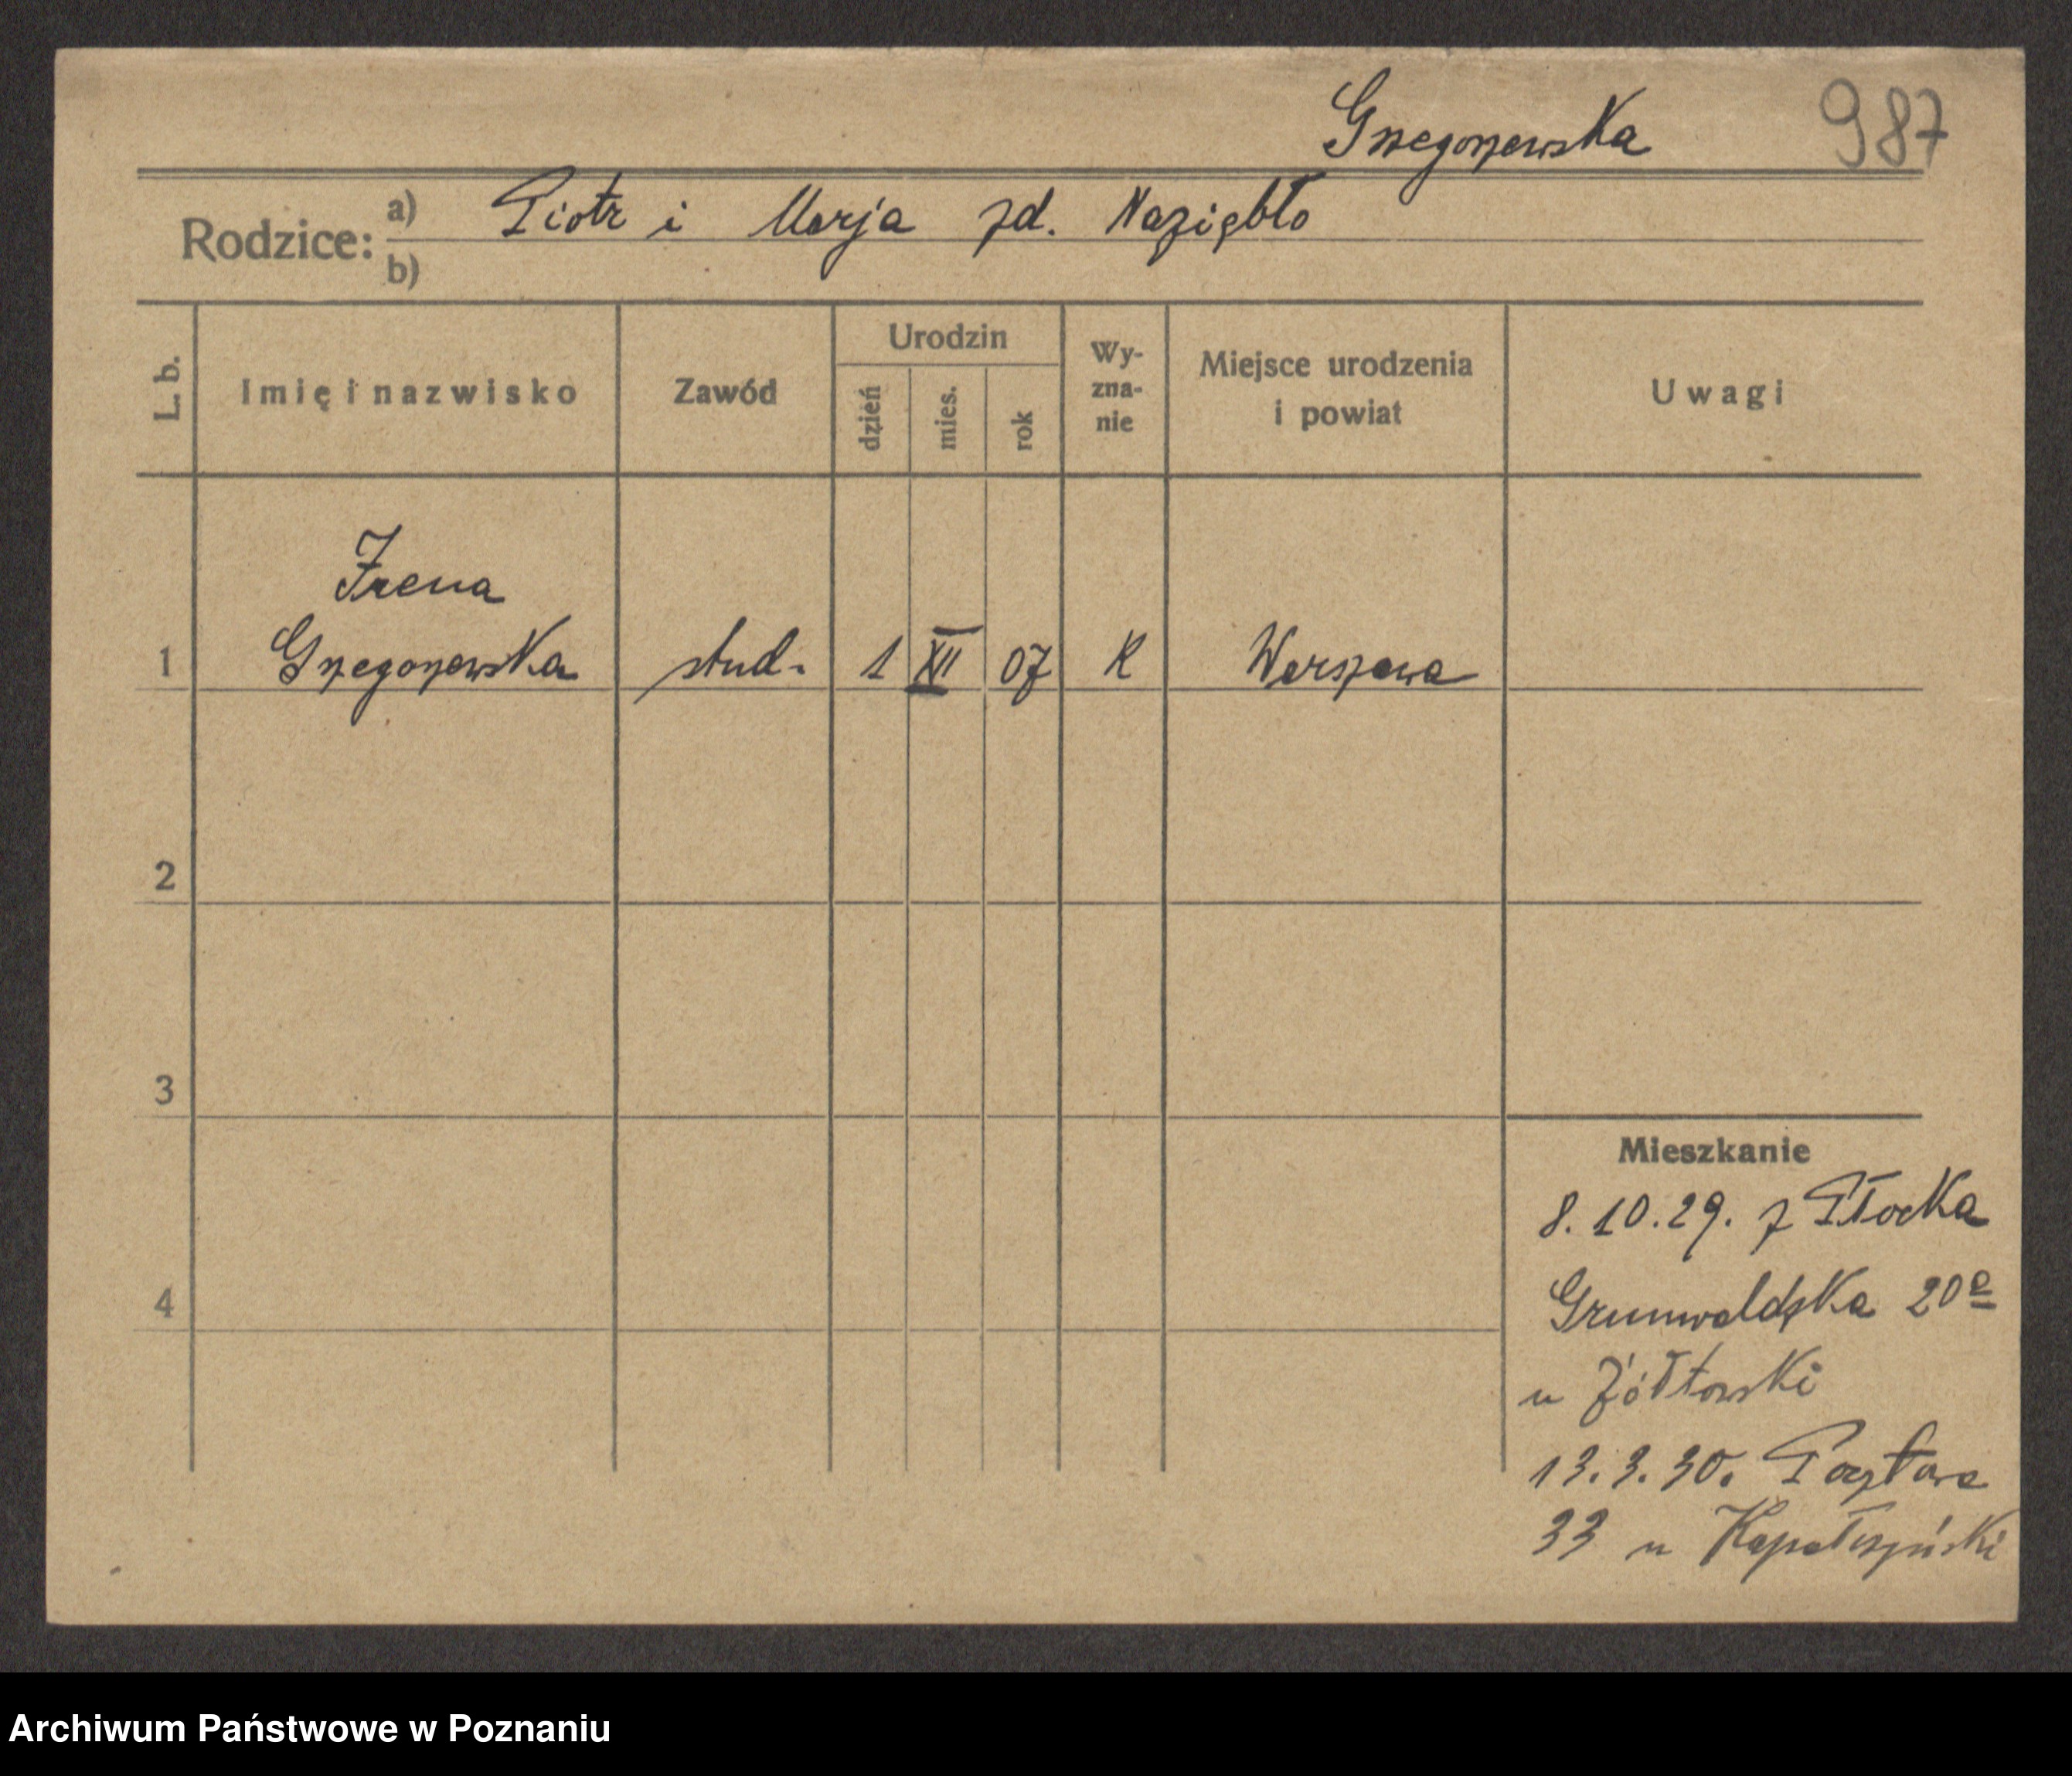 Grzegorzewska 987
Rodzice: a) Piotr i Marja zd. Naziębło
b)
L. b. Imię i nazwisko Zawód Urodzin dzień mies. rok Wy-zna-nie Miejsce urodzenia i powiat Uwagi
Irena
1 Grzegorzewska stud. 1 XII 07 K Warszawa
2
3
Mieszkanie
8.10.29. z Płocka
4
Grunwaldzka 20a
u Żółtowski
13.3.30. Pocztowa
33 u
Archiwum Państwowe w Poznaniu